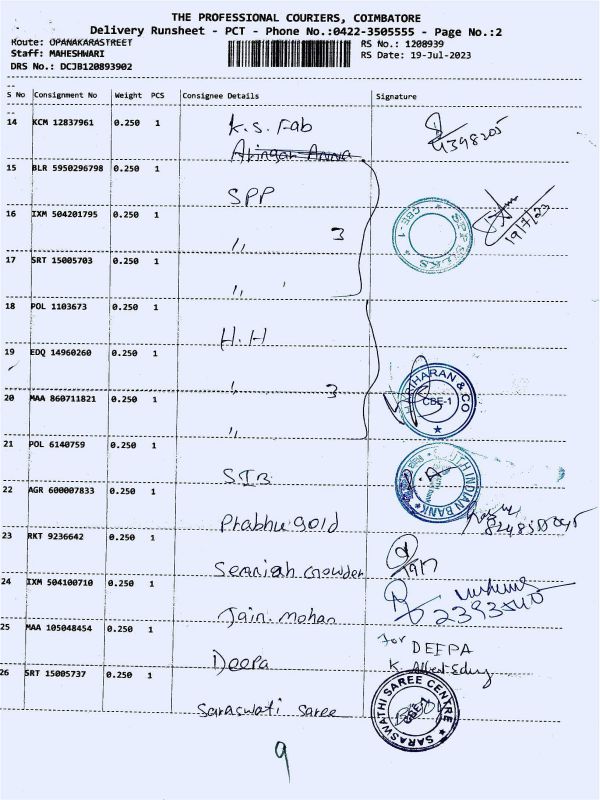 THE PROFESSIONAL COURIERS, COIMBATORE
Delivery Runsheet - PCT - Phone No.:0422-3505555 - Page No.:2
Route: OPANAKARASTREET
RS No.: 1208939
Staff: MAHESHWARI
RS Date: 19-Jul-2023
DRS No.: DCJB120893902
S No Consignment No Weight PCS Consignee Details Signature
14 KCM 12837961 0.250 1 K.S. Fab
15 BLR 5950296798 0.250 1 SPP
SPP SILKS CBE-1
19/7/23
16 IXM 504201795 0.250 1 " 3
17 SRT 15005703 0.250 1 "
18 POL 1103673 0.250 1 H.H
19 EDQ 14960260 0.250 1 " 3
HARIHARAN & CO CBE-1
20 MAA 860711821 0.250 1 "
21 POL 6140759 0.250 1 SIB
SOUTH INDIAN BANK
22 AGR 600007833 0.250 1 Prabhu gold
23 RKT 9236642 0.250 1 Seeniah Gowder
19/7
24 IXM 504100710 0.250 1 Jain. Mohan
25 MAA 105048454 0.250 1 Deepa
For DEEPA
26 SRT 15005737 0.250 1 Saraswati Saree
SARASWATHI SAREE CENTRE CBE-1
9